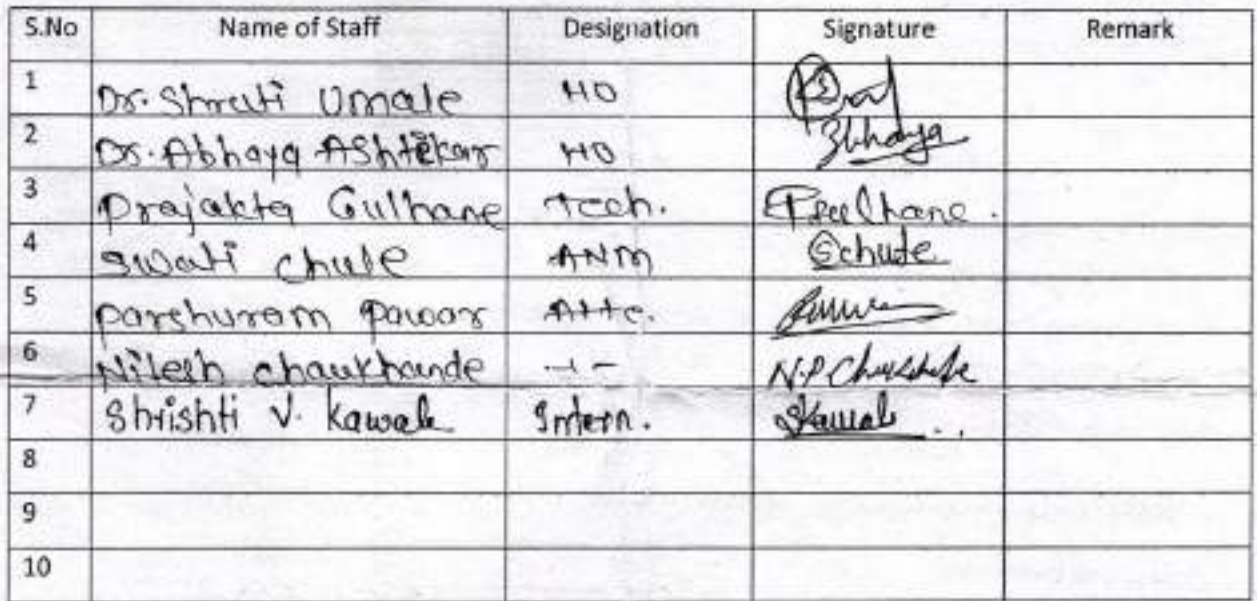 S.No Name of Staff Designation Signature Remark
1 Dr. Shruti Umale MO
2 Dr. Abhaya AShtekar MO Abhaya
3 Prajakta Gulhane Tech. PGulhane.
4 Swati chule ANM Schute
5 parshuram pawar Attc.
6 Nilesh chaukhande -11- N.P.
7 Shrishti V. Kawale Intern. SKawale
8
9
10